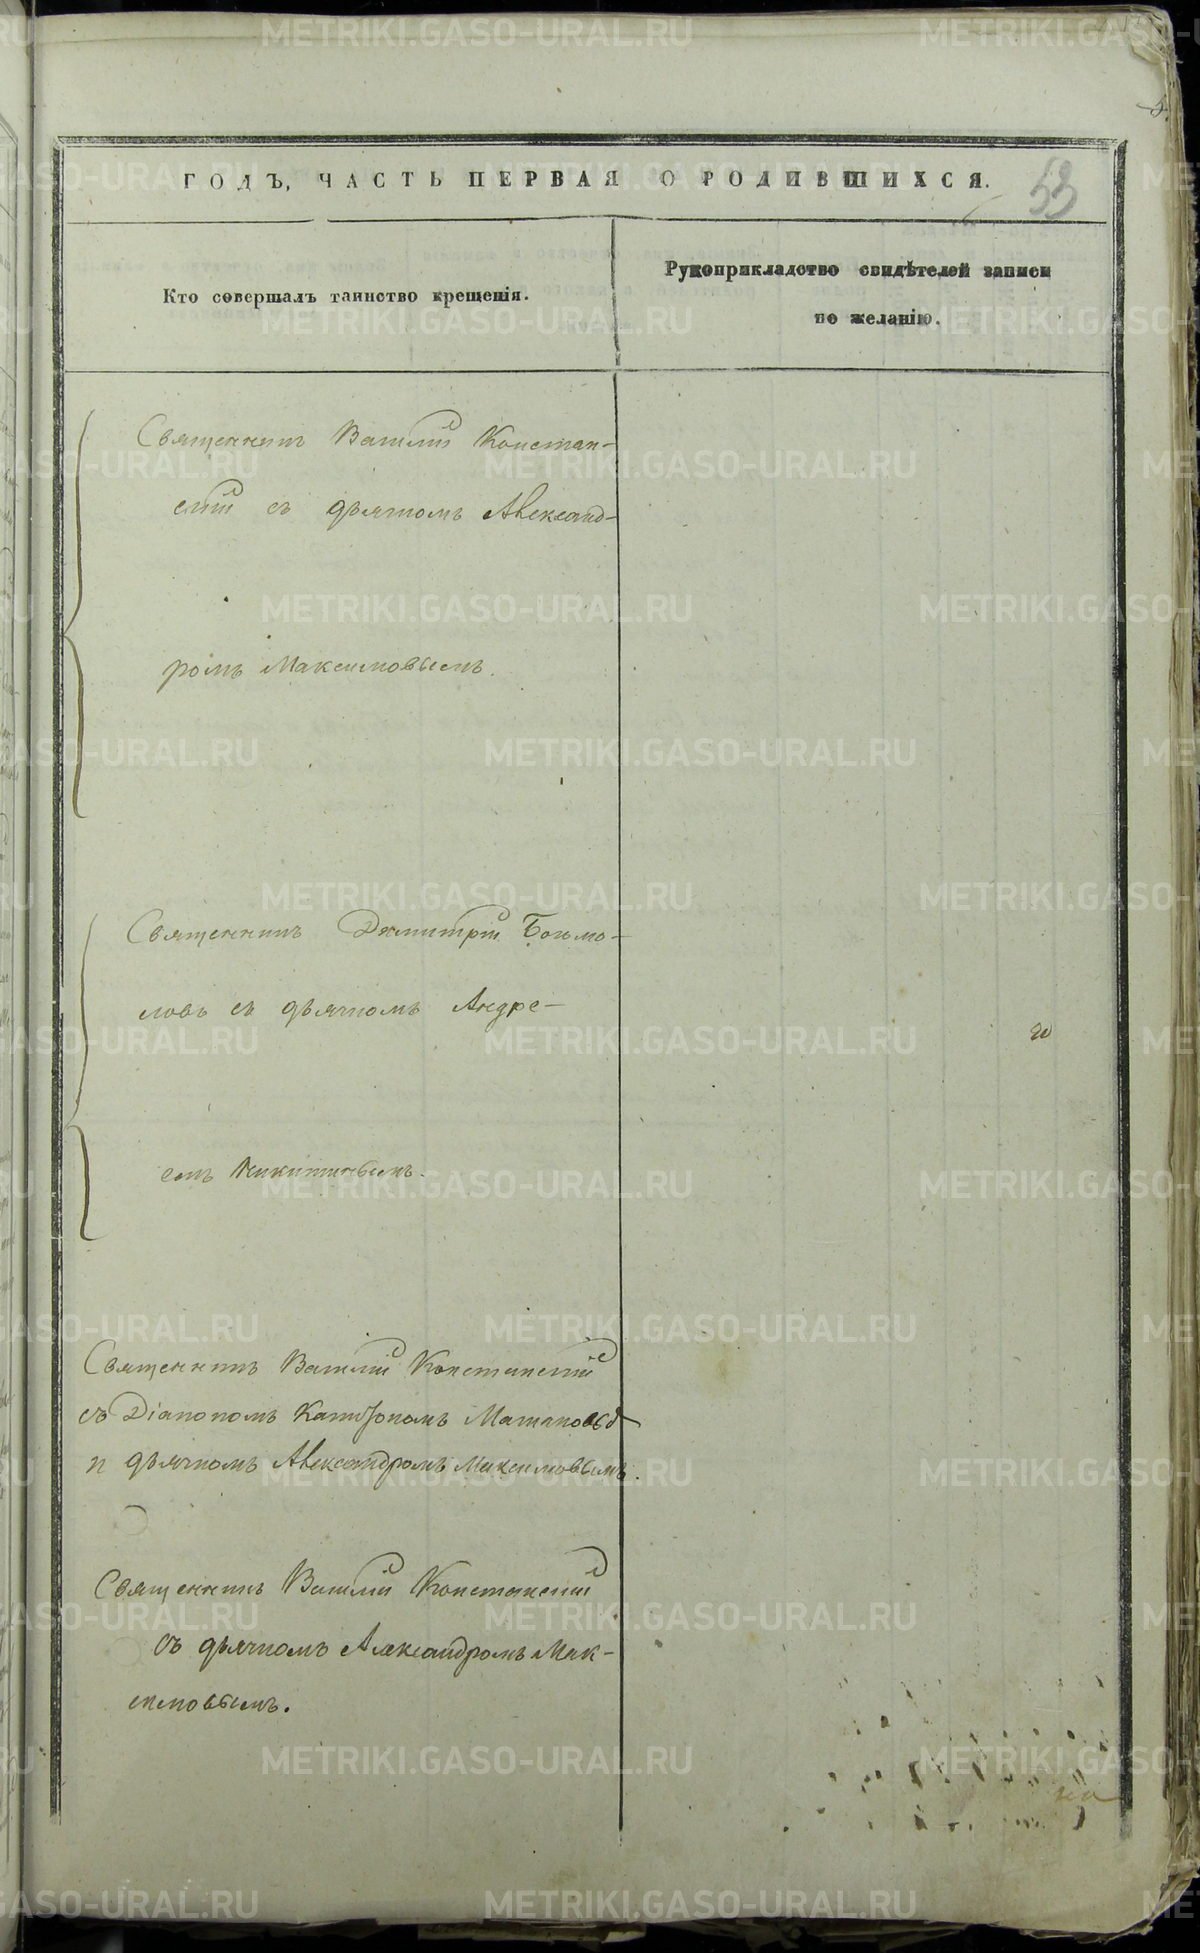 ГОДЪ, ЧАСТЬ ПЕРВАЯ О РОДИВШИХСЯ.
53
Кто совершалъ таинство крещенія.
Рукоприкладство свидѣтелей записи
по желанію.
Священникъ Василій Констан-
скій съ дьячкомъ Александ-
ромъ Максимовымъ.
Священникъ Димитрій Богомо-
ловъ съ дьячкомъ Андре-
емъ Никитинымъ.
Священникъ Василій Констанскій
съ Діакономъ
и дьячкомъ Александромъ Максимовымъ.
Священникъ Василій Констанскій
съ дьячкомъ Александромъ Мак-
симовымъ.
METRIKI.GASO-URAL.RU